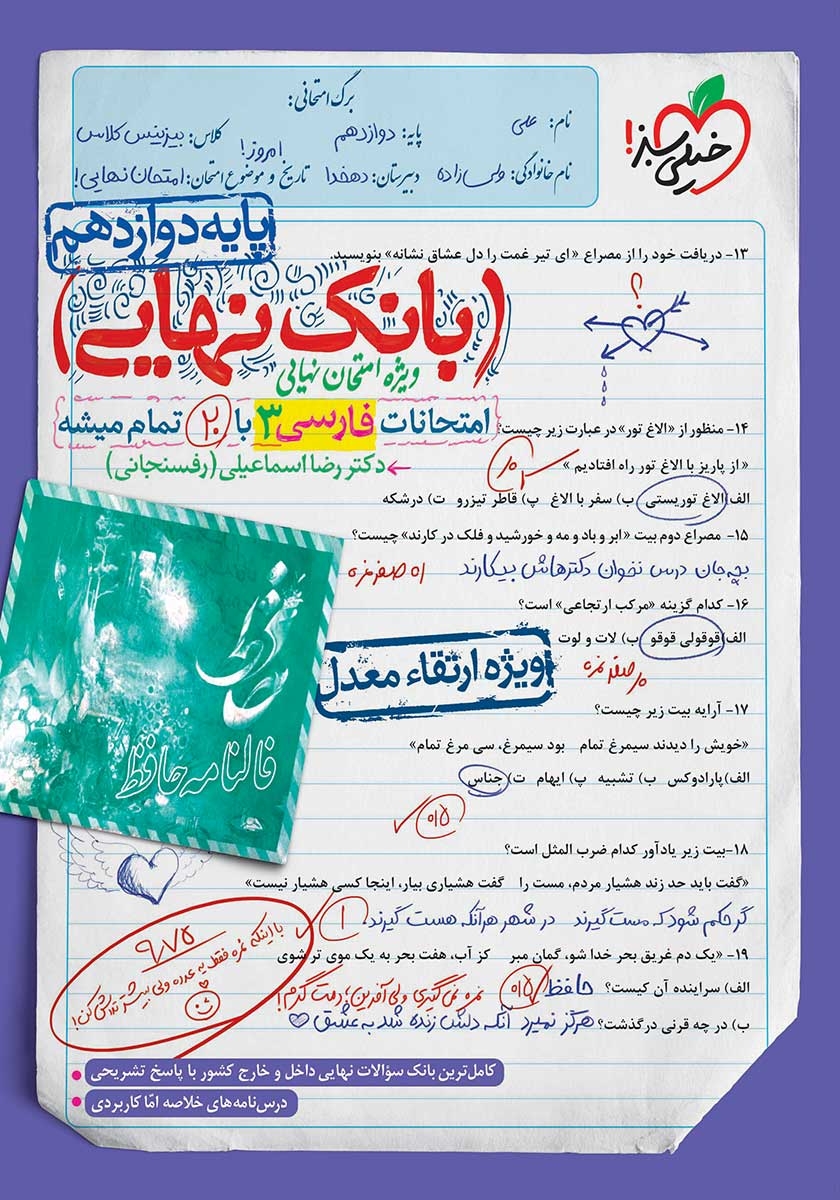 خیلی سبز!
برگ امتحانی:
نام: علی
پایه: دوازدهم
کلاس: بیزینس کلاس
نام خانوادگی: ولی زاده
دبیرستان: دهخدا
تاریخ و موضوع امتحان: امروز! امتحان نهایی!
پایه دوازدهم
۱۳- دریافت خود را از مصراع «ای تیر غمت را دل عشاق نشانه» بنویسید.
؟
(بانک نهایی)
ویژه امتحان نهایی
امتحانات فارسی ۳ با ۲۰ تمام میشه
دکتر رضا اسماعیلی (رفسنجانی)
۱۴- منظور از «الاغ تور» در عبارت زیر چیست؟
« از پاریز با الاغ تور راه افتادیم »
الف) الاغ توریستی ب) سفر با الاغ پ) قاطر تیزرو ت) درشکه
۱۵- مصراع دوم بیت «ابر و باد و مه و خورشید و فلک در کارند» چیست؟
بچه جان درس نخوان دکترهاش بیکارند
صفر نمره
۱۶- کدام گزینه «مرکب ارتجاعی» است؟
الف) قوقولی قوقو ب) لات و لوت
صفر نمره
ویژه ارتقاء معدل
۱۷- آرایه بیت زیر چیست؟
«خویش را دیدند سیمرغ تمام بود سیمرغ، سی مرغ تمام»
الف) پارادوکس ب) تشبیه پ) ایهام ت) جناس
۰/۵
فالنامه حافظ
۱۸- بیت زیر یادآور کدام ضرب المثل است؟
«گفت باید حد زند هشیار مردم، مست را گفت هشیاری بیار، اینجا کسی هشیار نیست»
گر حکم شود که مست گیرند در شهر هر آنکه هست گیرند
۱
۱۹- «یک دم غریق بحر خدا شو، گمان مبر کز آب، هفت بحر به یک موی تر شوی
الف) سراینده آن کیست؟ حافظ
۰/۵
نمره نمی گیری ولی آفرین؛ دمت گرم!
ب) در چه قرنی درگذشت؟ هرگز نمیرد آنکه دلش زنده شد به عشق
۹/۷۵
با اینکه نمره فقط یه عدده ولی بیشتر تلاش کن!
کامل‌ترین بانک سؤالات نهایی داخل و خارج کشور با پاسخ تشریحی
درس‌نامه‌های خلاصه امّا کاربردی